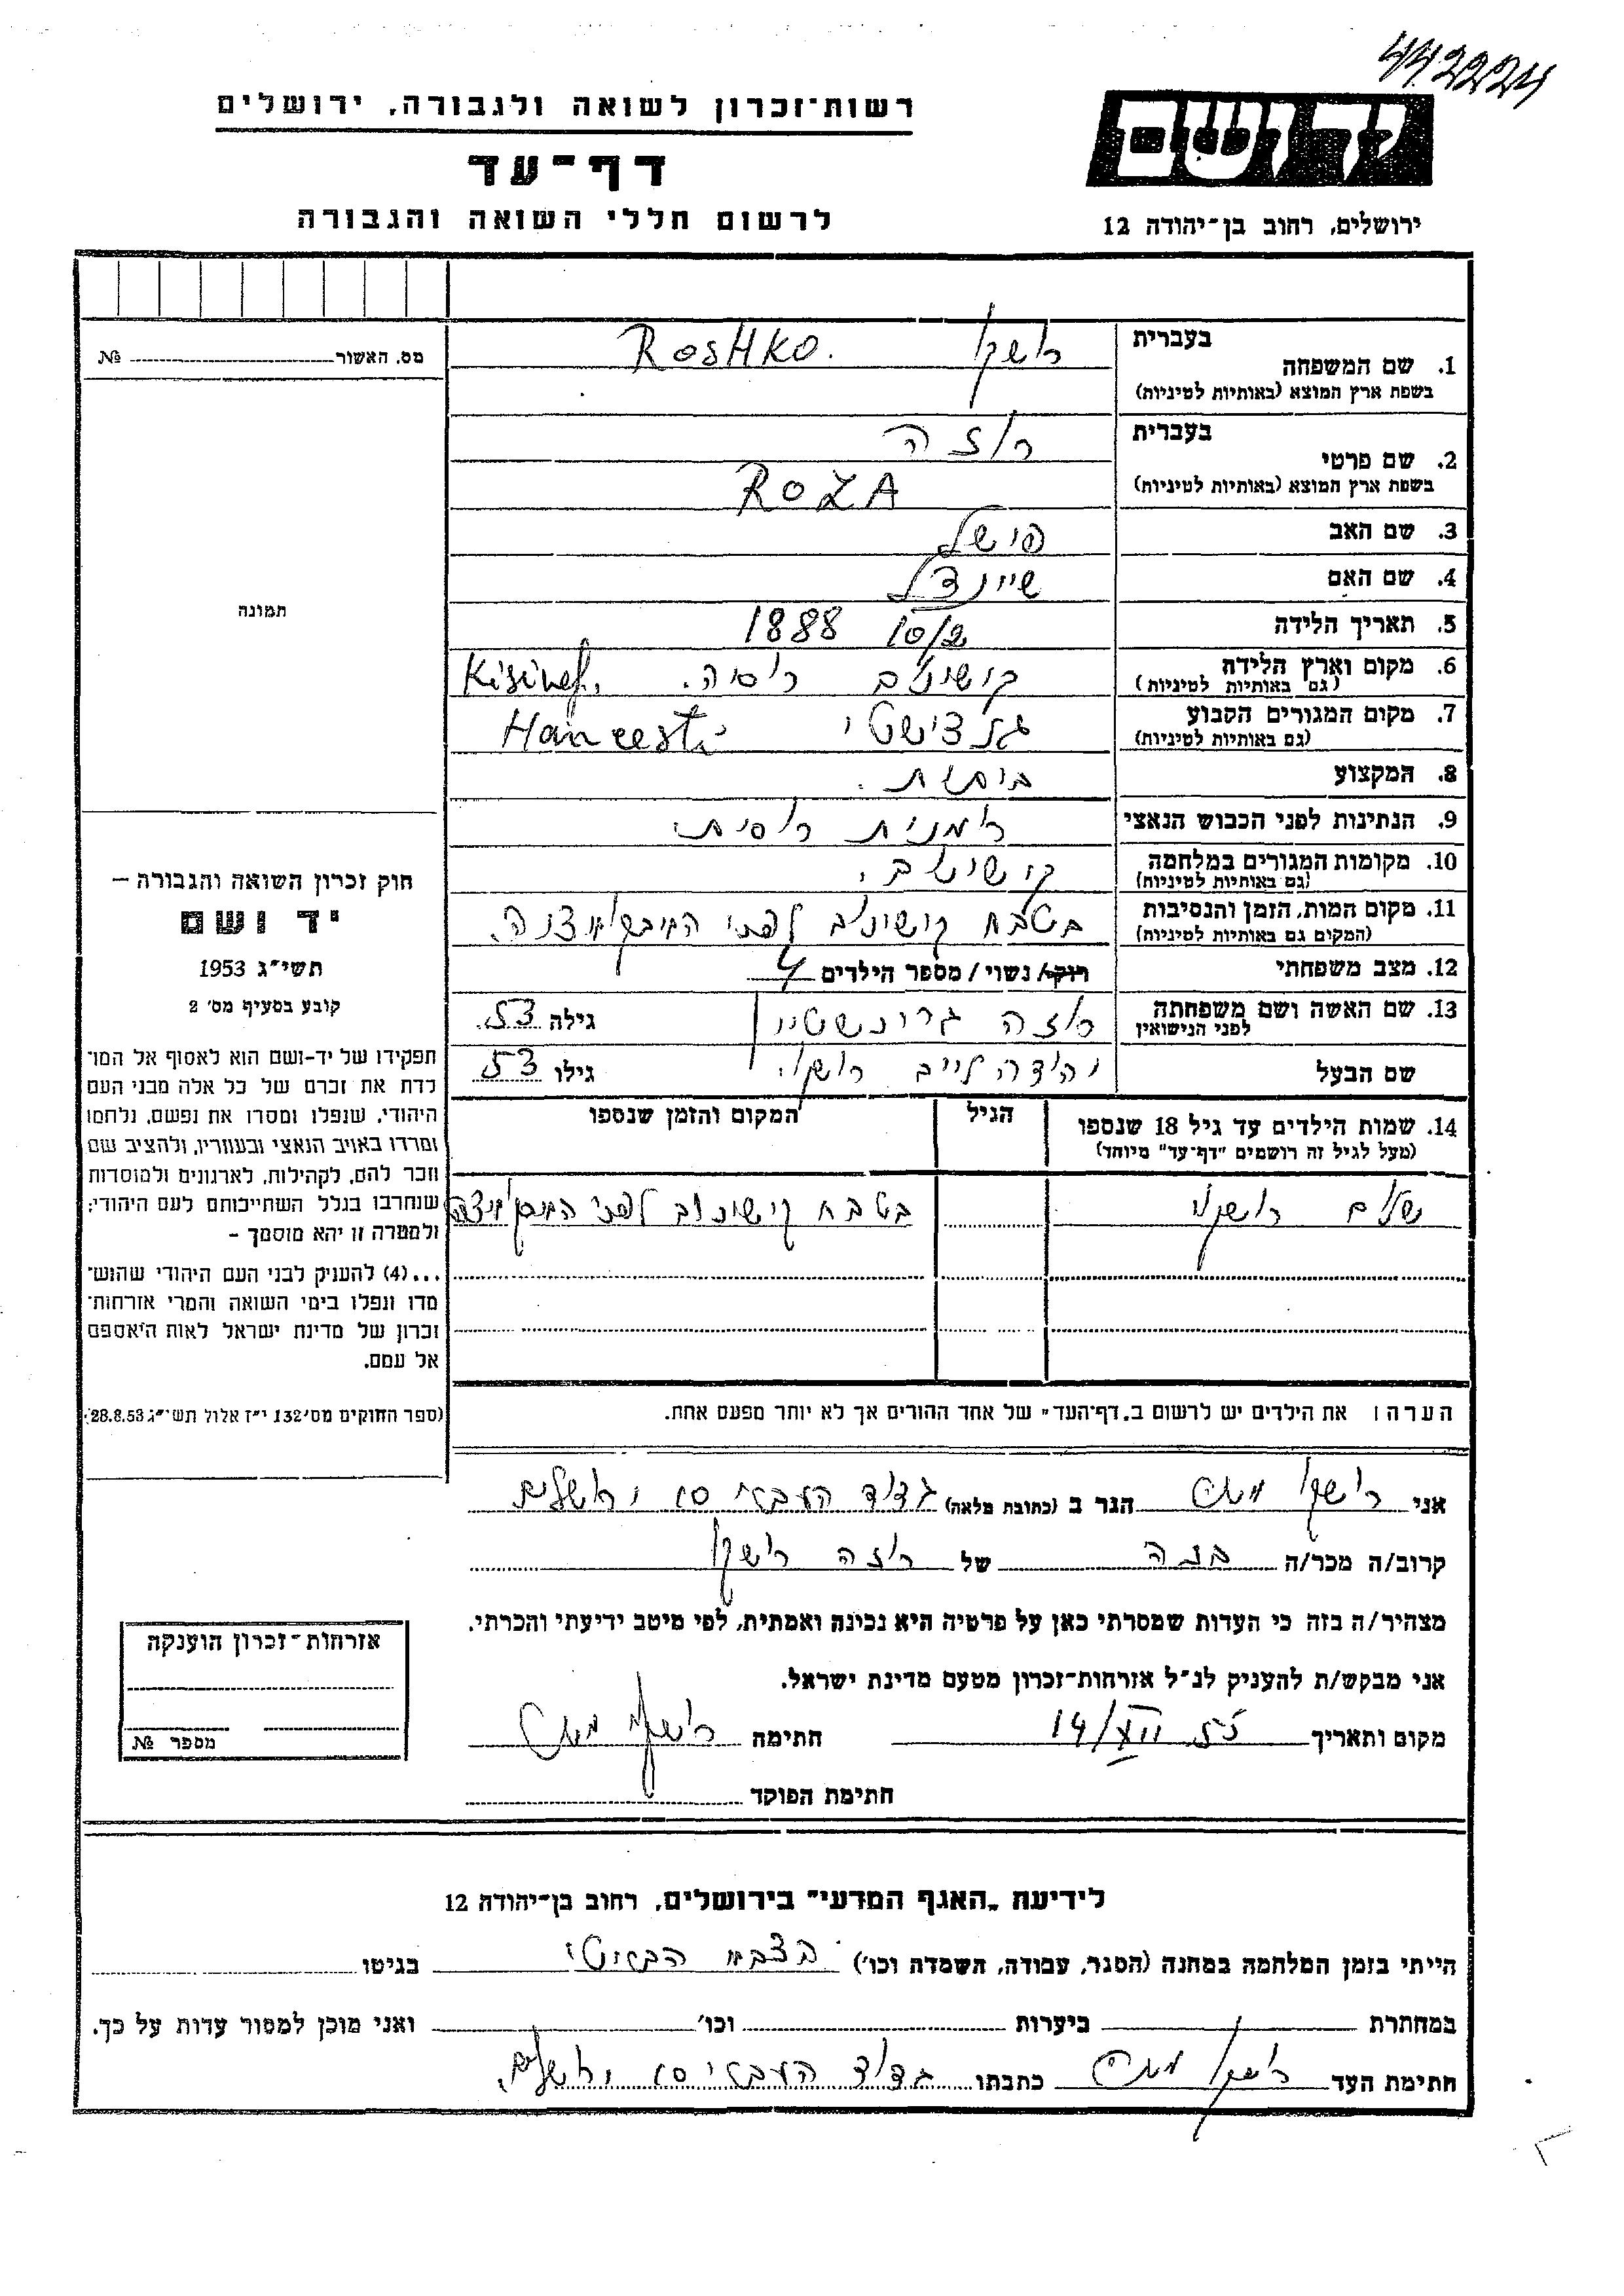 442224
רשות־זכרון לשואה ולגבורה, ירושלים
דף־עד
לרשום חללי השואה והגבורה
ידושם
ירושלים, רחוב בן־יהודה 12
מס. האשור № 
1. שם המשפחה
בעברית רושקו ROSHKO.
בשפת ארץ המוצא (באותיות לטיניות)
2. שם פרטי
בעברית רוזה
בשפת ארץ המוצא (באותיות לטיניות) ROZA
3. שם האב פישל
4. שם האם שיינדל
5. תאריך הלידה 10/2 1888
6. מקום וארץ הלידה קישינוב רוסיה. Kisinef.
(גם באותיות לטיניות)
7. מקום המגורים הקבוע גנצישטי Hancesti
(גם באותיות לטיניות)
8. המקצוע
9. הנתינות לפני הכבוש הנאצי רומנית רוסית
10. מקומות המגורים במלחמה קישינוב.
(גם באותיות לטיניות)
11. מקום המות, הזמן והנסיבות בטבח קישינוב לפני
(המקום גם באותיות לטיניות)
12. מצב משפחתי רוק/ נשוי / מספר הילדים 4
13. שם האשה ושם משפחתה רוזה גרינשטיין גילה 53.
לפני הנישואין
שם הבעל יהודה לייב רושקו. גילו 53
14. שמות הילדים עד גיל 18 שנספו הגיל המקום והזמן שנספו
(מעל לגיל זה רושמים "דף־עד" מיוחד)
שלום רושקו בטבח קישינוב לפני
הערה: את הילדים יש לרשום ב„דף־העד" של אחד ההורים אך לא יותר מפעם אחת.
תמונה
חוק זכרון השואה והגבורה —
יד ושם
תשי״ג 1953
קובע בסעיף מס׳ 2
תפקידו של יד-ושם הוא לאסוף אל המו־
לדת את זכרם של כל אלה מבני העם
היהודי, שנפלו ומסרו את נפשם, נלחמו
ומרדו באויב הנאצי ובעוזריו, ולהציב שם
וזכר להם, לקהילות, לארגונים ולמוסדות
שנחרבו בגלל השתייכותם לעם היהודי;
ולמטרה זו יהא מוסמך –
...(4) להעניק לבני העם היהודי שהוש־
מדו ונפלו בימי השואה והמרי אזרחות־
זכרון של מדינת ישראל לאות היאספם
אל עמם.
(ספר החוקים מס׳ 132 י״ז אלול תשי״ג 28.8.53)
אני רושקו הגר ב (כתובת מלאה) גדוד העברי 10 ירושלים
קרוב/ה מכר/ה בנה של רוזה רושקו
מצהיר/ה בזה כי העדות שמסרתי כאן על פרטיה היא נכונה ואמתית, לפי מיטב ידיעתי והכרתי.
אני מבקש/ת להעניק לנ״ל אזרחות־זכרון מטעם מדינת ישראל.
מקום ותאריך 14/XII 55 חתימה רושקו
חתימת הפוקד
אזרחות־זכרון הוענקה
מספר №
לידיעת „האגף המדעי" בירושלים, רחוב בן־יהודה 12
הייתי בזמן המלחמה במחנה (הסגר, עבודה, השמדה וכו׳) בצבא הבריטי בגיטו
במחתרת ביערות וכו׳ ואני מוכן למסור עדות על כך.
חתימת העד רושקו כתבתו גדוד העברי 10 ירושלים.